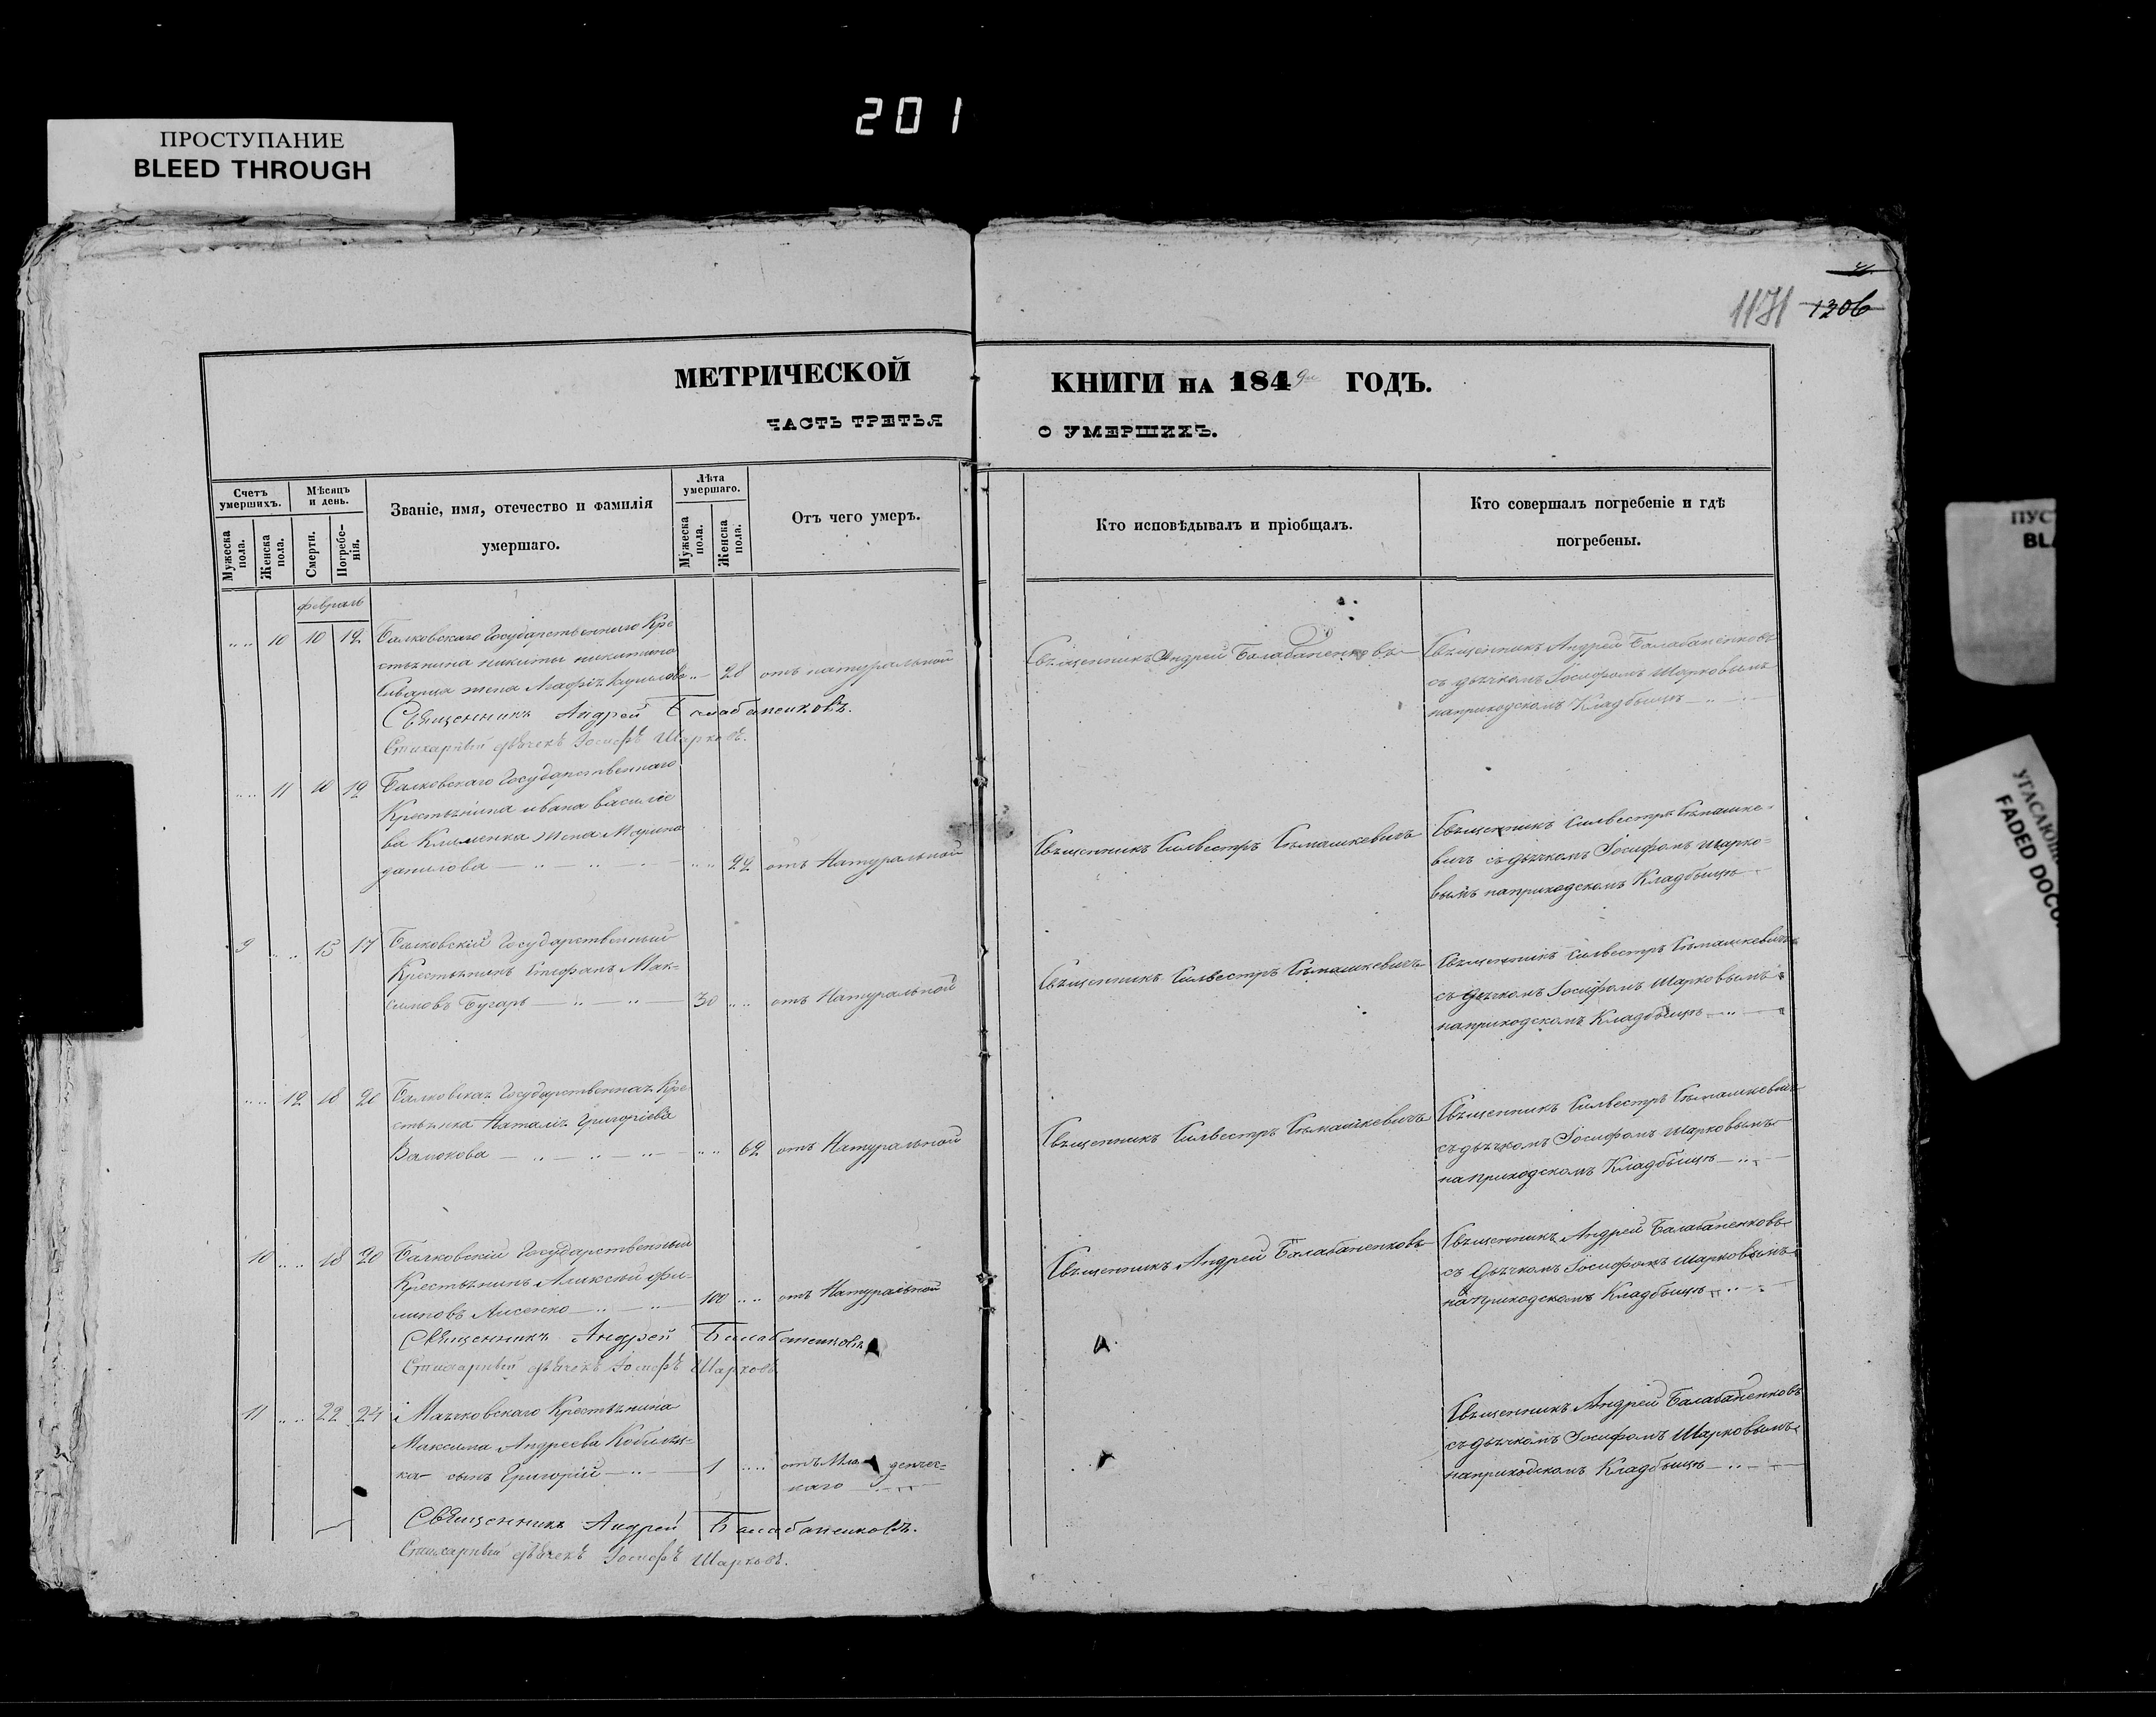 201
ПРОСТУПАНИЕ
BLEED THROUGH
1171 1206
МЕТРИЧЕСКОЙ КНИГИ НА 1849 ГОДЪ.
ЧАСТЬ ТРЕТЬЯ О УМЕРШИХЪ.
Счетъ умершихъ.
Мужеска пола.
Женска пола.
Мѣсяцъ и день.
Смерти.
Погребенія.
Званіе, имя, отечество и фамилія
умершаго.
Лѣта умершаго.
Мужеска пола.
Женска пола.
Отъ чего умеръ.
Кто исповѣдывалъ и пріобщалъ.
Кто совершалъ погребеніе и гдѣ
погребены.
февраль
10 10 12 Балковскаго Государственнаго Кре
стьянина никиты никитина
жена 28 отъ натуральной
Священникъ Андрей Балабаненковъ
Священникъ Андрей Балабаненковъ
съ дьячкомъ Іосифомъ Шарковымъ
наприходскомъ Кладбыщѣ
Священникъ Андрей Балабаненковъ.
Стихарный дьячекъ Іосифъ Шарковъ.
11 10 12 Балковскаго Государственнаго
Крестьянина ивана василіе
ва Клименка жена Марина
данилова 22 отъ Натуральной
Священникъ Силвестръ Сѣмашкевичъ
Священникъ Силвестръ Сѣмашке-
вичъ съ дьячкомъ Іосифомъ шарко-
вымъ наприходскомъ Кладбыщѣ
9 15 17 Балковскій Государственный
Крестьянинъ Стефанъ Мак-
симовъ Бугаръ 30 отъ Натуральной
Священникъ Силвестръ Сѣмашкевичъ
Священникъ Силвестръ Сѣмашкевичъ
съ дьячкомъ Іосифомъ Шарковымъ
наприходскомъ Кладбыщѣ
12 18 20 Балковская Государственная Кре
стьянка Наталія Григоріева
Валюкова 62 отъ Натуральной
Священникъ Силвестръ Сѣмашкевичъ
Священникъ Силвестръ Сѣмашкевичъ
съ дьячкомъ Іосифомъ шарковымъ
наприходскомъ Кладбыщѣ
10 18 20 Балковскій Государственный
Крестьянинъ Аликсѣй фи-
липовъ Лисенко 100 отъ Натуральной
Священникъ Андрей Балабаненковъ
Священникъ Андрей Балабаненковъ
съ Дьячкомъ Іосифомъ шарковымъ
наприходскомъ Кладбыщѣ
Священникъ Андрей Балабаненковъ
Стихарный дьячекъ Іосифъ Шарковъ
11 22 24 Крестьянина
Максима Андреева
ка сынъ Григорій 1 отъ Младенчес-
каго
Священникъ Андрей Балабаненковъ
съ дьячкомъ Іосифомъ Шарковымъ
наприходскомъ Кладбыщѣ
Священникъ Андрей Балабаненковъ.
Стихарный дьячекъ Іосифъ Шарковъ.
ПУС
BL
FADED DOCU